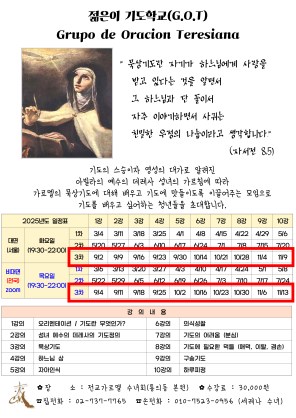 젊은이 기도학교(G.O.T)
Grupo de Oracion Teresiana
" 묵상기도란 자기가 하느님에게 사랑을
받고 있다는 것을 알면서
그 하느님과 단 둘이서
자주 이야기하면서 사귀는
친밀한 우정의 나눔이라고 생각합니다."
(자서전 8.5)
기도의 스승이자 영성의 대가로 알려진
아빌라의 예수의 데레사 성녀의 가르침에 따라
가르멜의 묵상기도에 대해 배우고 기도에 맛들이도록 이끌어주는 모임으로
기도를 배우고 싶어하는 청년들을 초대합니다.
2025년도 일정표 1강 2강 3강 4강 5강 6강 7강 8강 9강 10강
대면 (서울) 화요일 (19:30-22:00)
1차 3/4 3/11 3/18 3/25 4/1 4/8 4/15 4/22 5/29 5/6
2차 5/20 5/27 6/3 6/10 6/17 6/24 7/1 7/8 7/15 7/20
3차 9/2 9/9 9/16 9/23 9/30 10/14 10/21 10/28 11/4 11/9
비대면 (전국) zoom 목요일 (19:30-22:00)
1차 3/6 3/13 3/20 3/27 4/3 4/10 4/17 4/24 5/1 5/8
2차 5/22 5/29 6/5 6/12 6/19 6/26 7/3 7/10 7/17 7/24
3차 9/4 9/11 9/18 9/25 10/2 10/16 10/23 10/30 11/6 11/13
강 의 내 용
1강의 오리엔테이션 / 기도란 무엇인가? 6강의 의식성찰
2강의 성녀 예수의 데레사의 기도정의 7강의 기도의 어려움 (분심)
3강의 묵상기도 8강의 기도에 필요한 덕들 (애덕, 이탈, 겸손)
4강의 하느님 상 9강의 구송기도
5강의 자아인식 10강의 하루피정
장 소 : 전교가르멜 수녀회(동의동 본원) 수강료 : 30,000원
집전화 : 02-737-7765 손전화 : 010-7523-0956 (세라니 수녀)